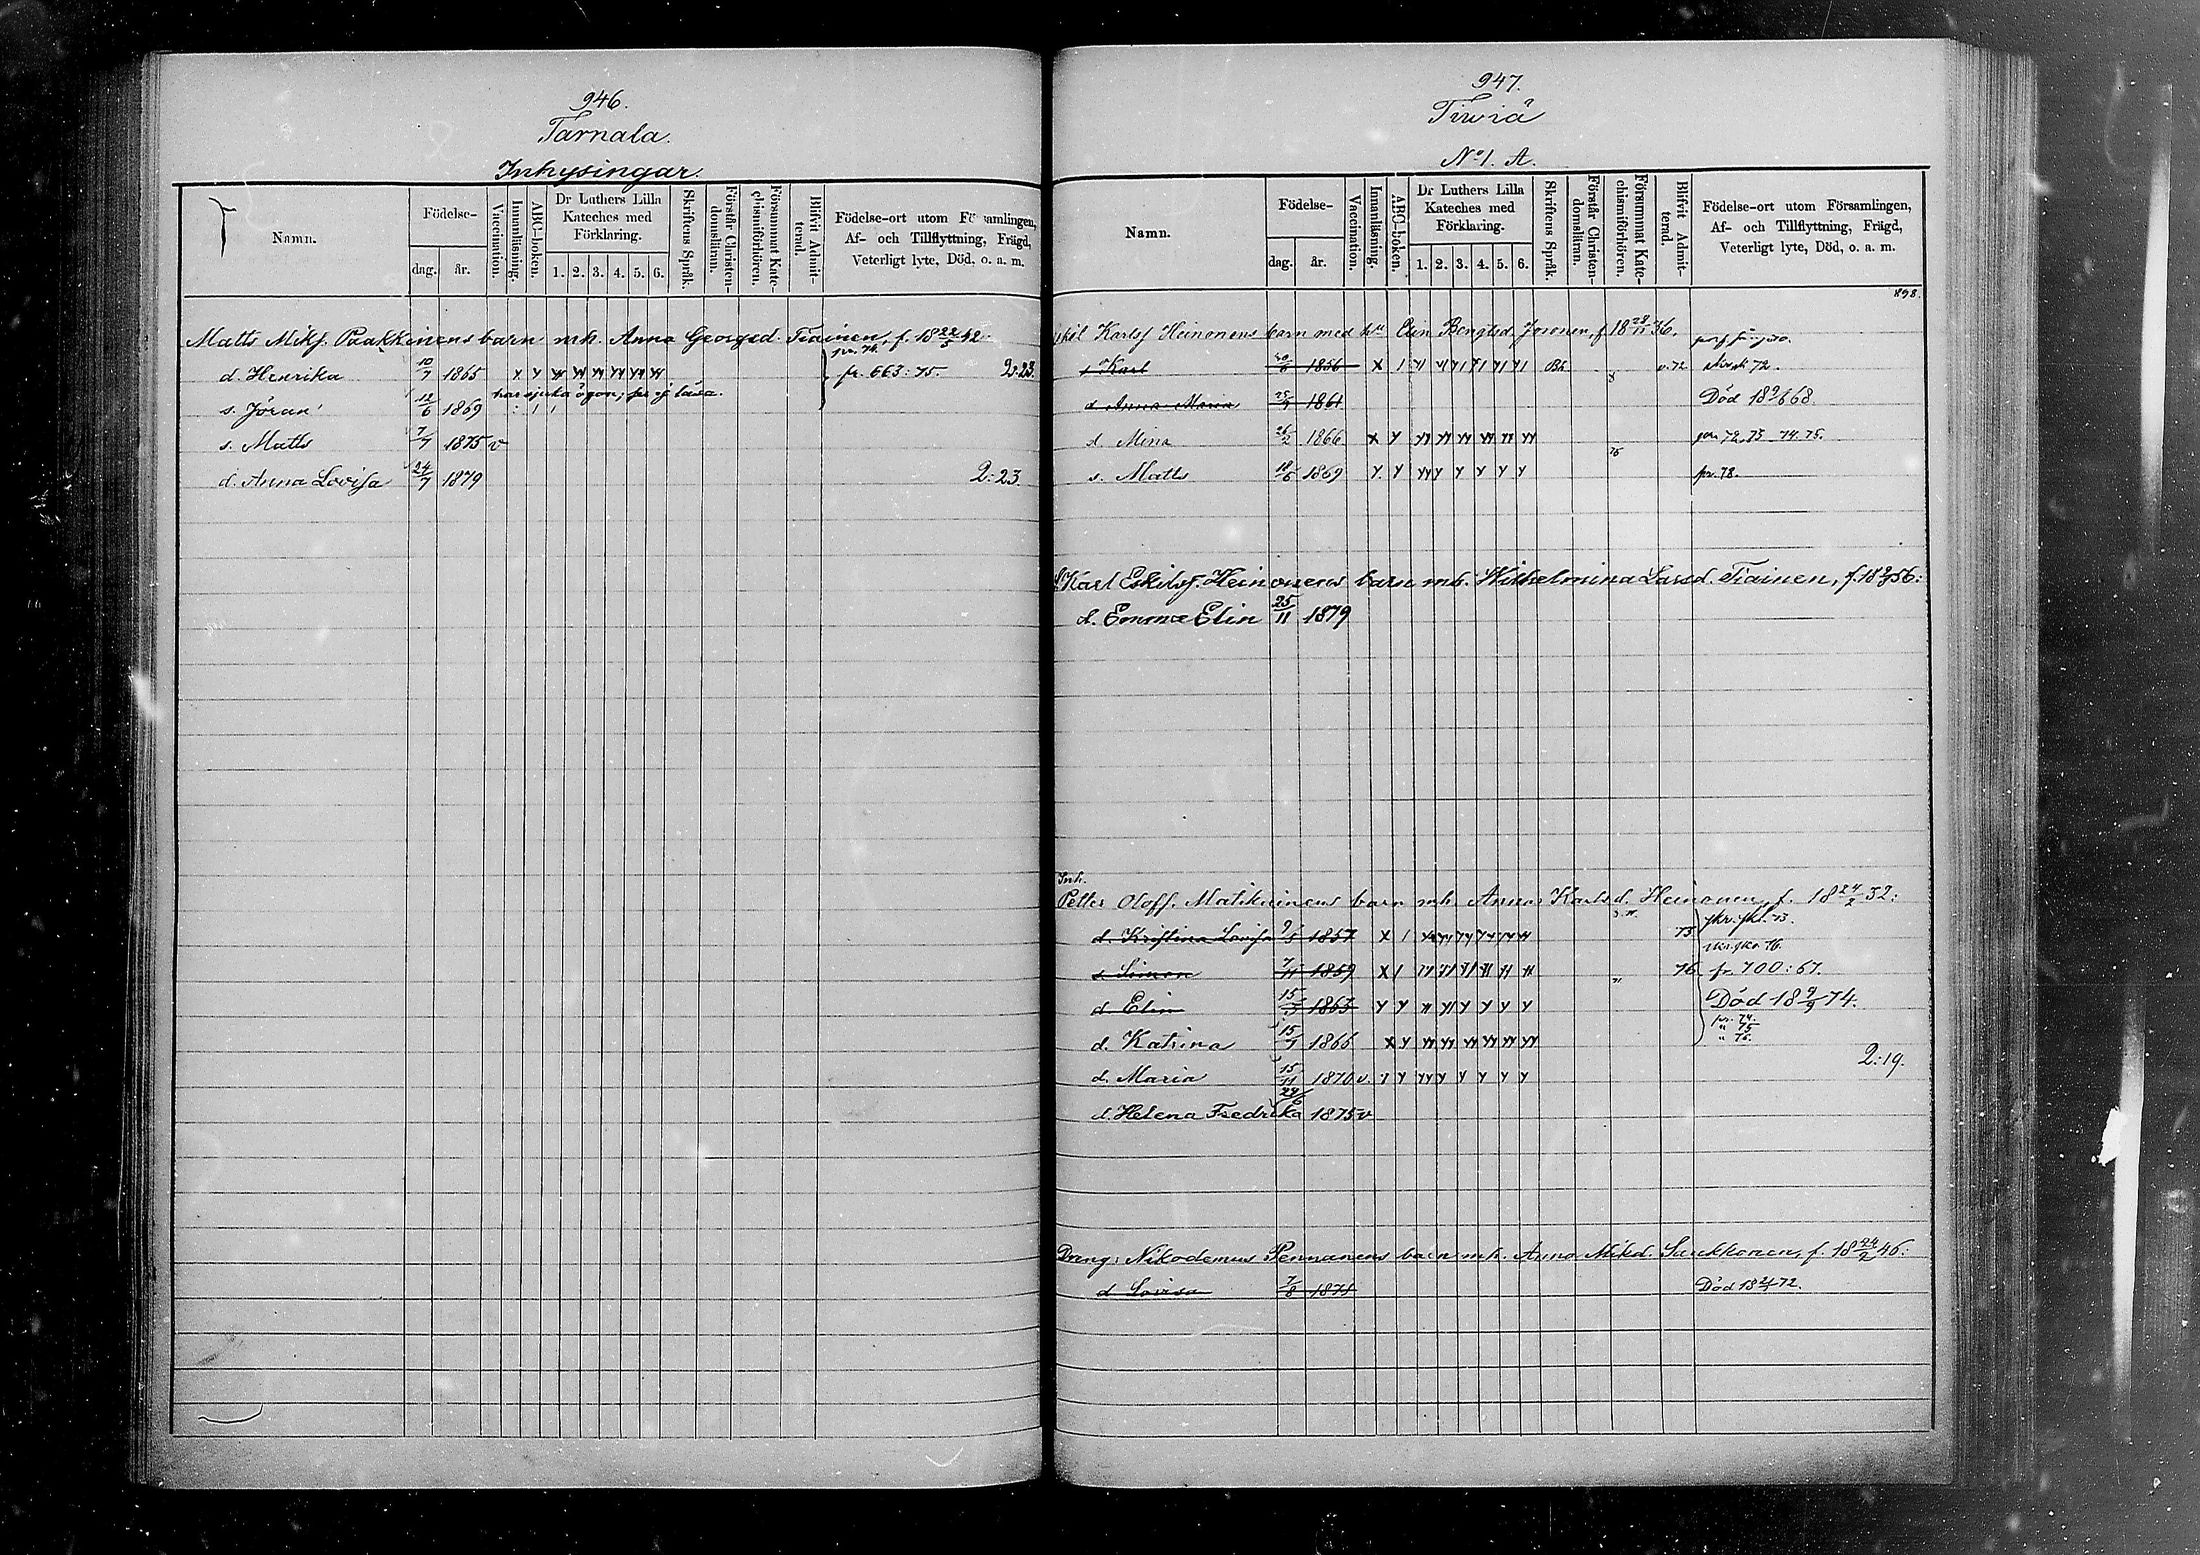 946.
Tarnala.
Inhysingar.
Namn.
Födelse-
dag.
år.
Vaccination.
Innanläsning.
ABC-boken.
Dr Luthers Lilla
Kateches med
Förklaring.
1. 2. 3. 4. 5. 6.
Skriftens Språk.
Förstår Christen-
domsläran.
Försummat Kate-
chismiförhören.
Blifvit Admit-
terad.
Födelse-ort utom Församlingen,
Af- och Tillflyttning, Frägd,
Veterligt lyte, Död, o. a. m.
Matts Miksf. Paakkinens barn mh. Anna Georgsd. Tiainen, f. 18 22/5 42.
pr. 74.
d. Henrika 10/7 1865 fr. 663. 75. 2:23.
har sjuka ögon; kr ej läsa.
s. Jöran 12/6 1869
s. Matts 7/7 1875 v
d. Anna Lovisa 24/7 1879 2:23.
947.
Tiwiä
No 1. A.
Namn.
Födelse-
dag.
år.
Vaccination.
Innanläsning.
ABC-boken.
Dr Luthers Lilla
Kateches med
Förklaring.
1. 2. 3. 4. 5. 6.
Skriftens Språk.
Förstår Christen-
domsläran.
Försummat Kate-
chismiförhören.
Blifvit Admit-
terad.
Födelse-ort utom Församlingen,
Af- och Tillflyttning, Frägd,
Veterligt lyte, Död, o. a. m.
898.
Karlsf Heinonens barn med Elin Bengtsd. Joronen, f. 18 28/11 36.
s Karl 1856 v. 72 72.
d. Anna Maria 25/9 1861 Död 18 9/6 68
d. Mina 26/2 1866 72. 73. 74. 75.
s. Matts 18/6 1869 pr. 78.
Karl Eskilsf. Heinonens barn mh. Wilhelmina Larsd. Tiainen,
d. Emma Elin 25/11 1879
Inh.
Petter Olofs. Matikainens barn mh. Anna Karlsd. Heinonen, f. 18 24/2 32:
d. Kristina Lovisa 9/5 1857 75
s. Simon 7/11 1859 76 fr. 700: 67.
d. Elin 15/3 1863 Död 18 9/9 74.
pr. 74.
" 75
" 76.
d. Katrina 15/7 1866
2:19.
d. Maria 15/11 1870 v.
d. Helena Fredrika 22/6 1875 v
Dreng: Nikodemus Pennanens barn mh. Anna Mikd. Suukkonen, f. 18 24/2 46:
d Lovisa 7/8 1871 Död 18 2/7 72.